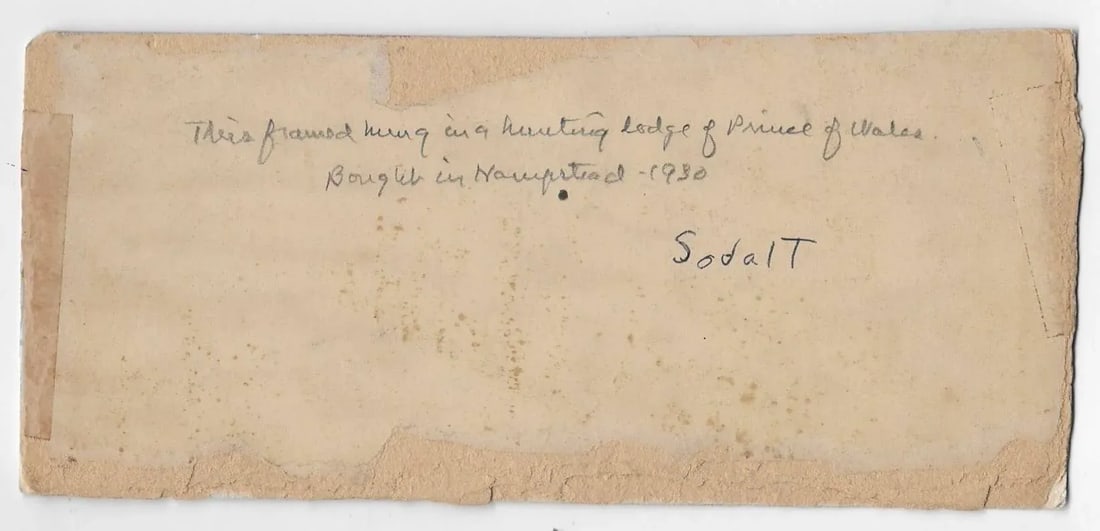 This framed hung in a hunting lodge of Prince of Wales.
Bought in Hampstead - 1930
SodalT